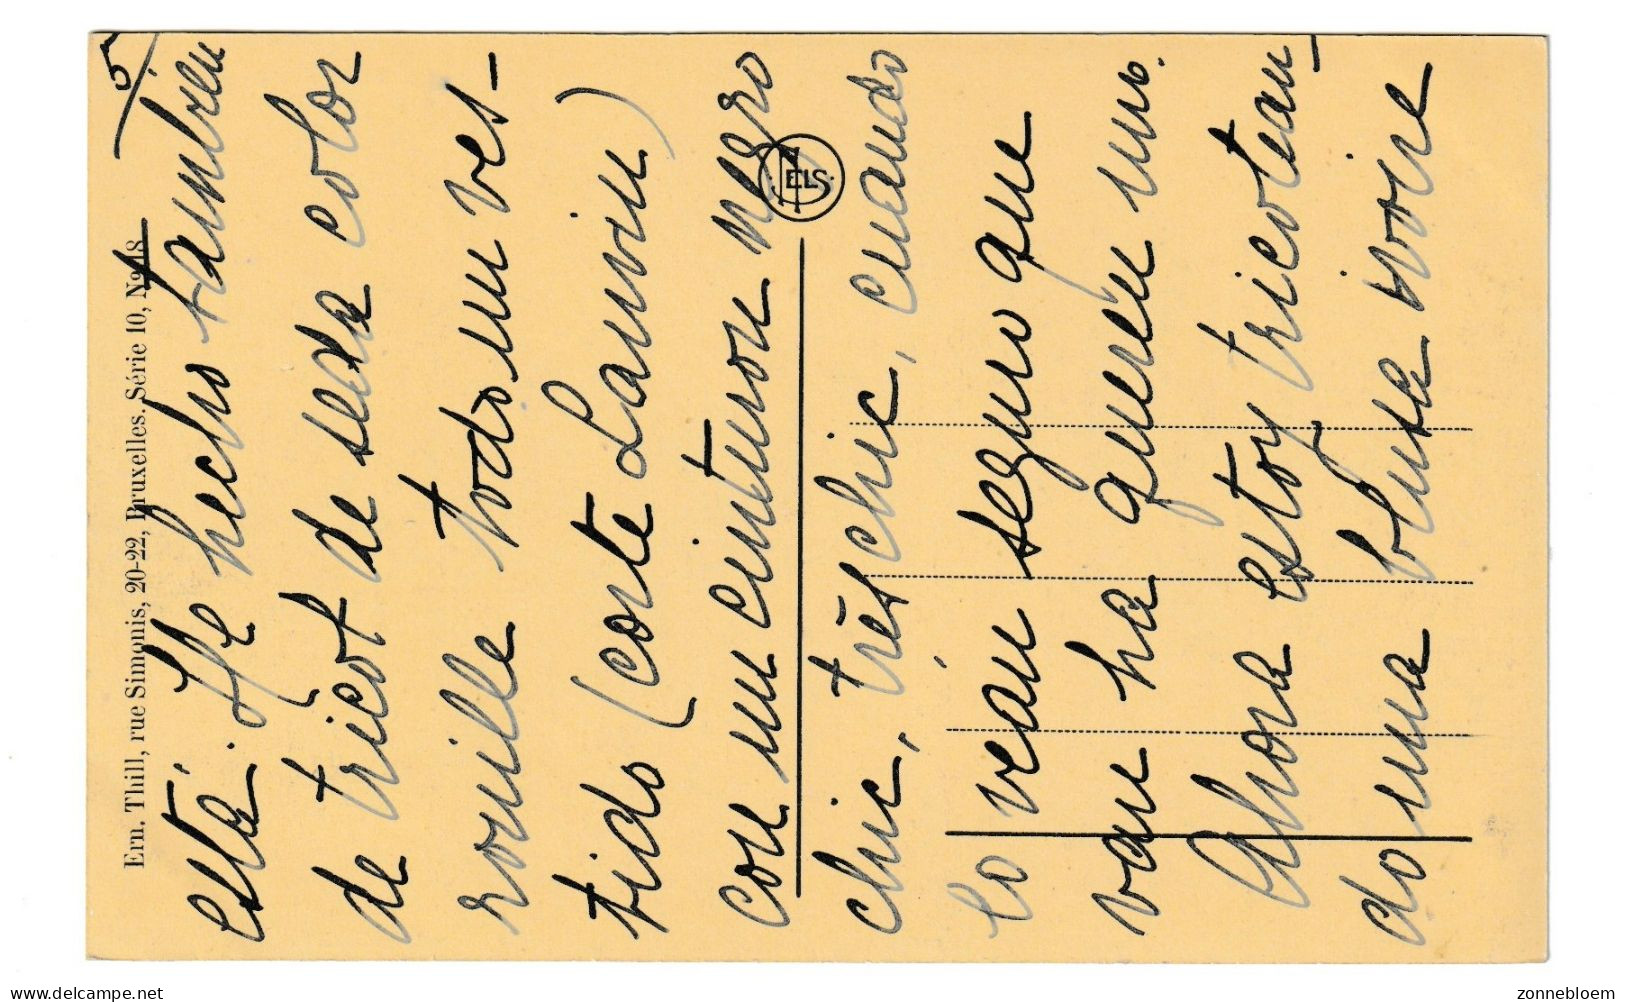 5
Ern. Thill, rue Simonis, 20-22, Bruxelles. Série 10, No 18
está. He hecho tambien
de tricot de seda color
rouille todo un ves-
tido (corte Lanvin)
con un cinturon negro
chic, très chic, cuando
lo vean seguro que
van ha querer uno.
Ahora estoy tricotean-
do una blusa ivoire
NELS
delcampe.net
zonnebloem